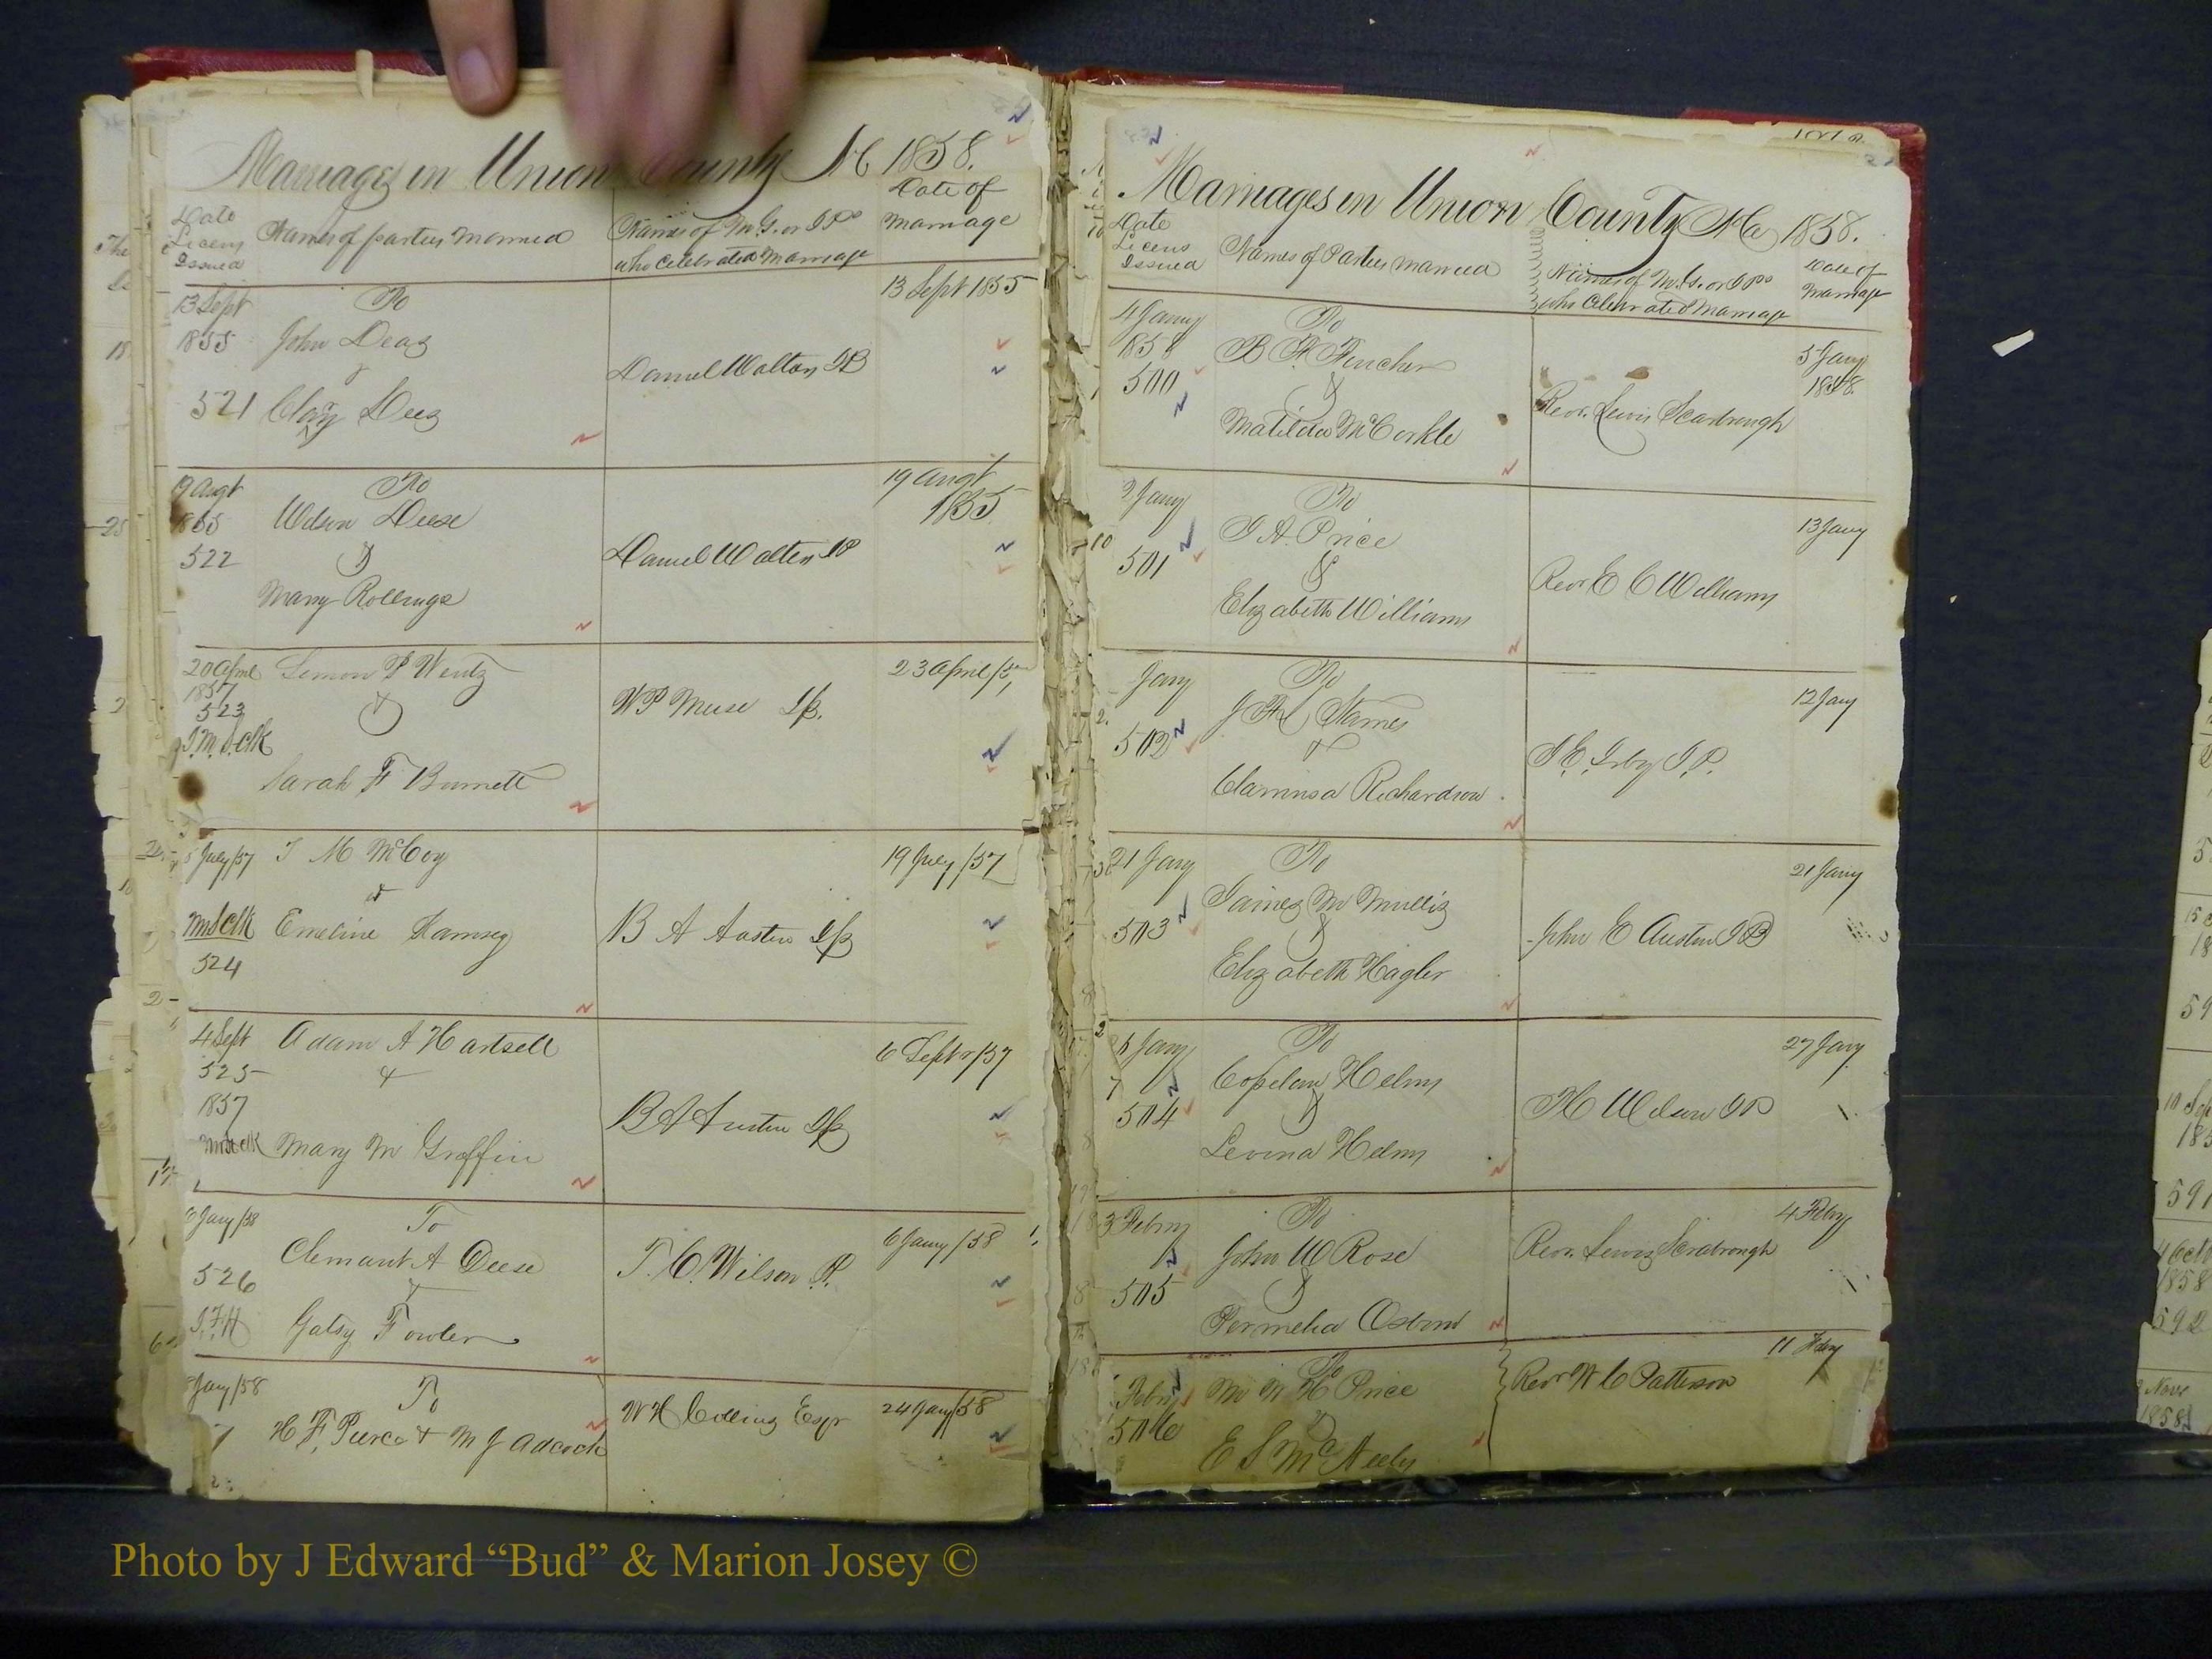 Marriages in Union County NC 1858.
Date
Licens
Issued
Names of parties married
Names of M.G. or JPs
who Celebrated Marriage
Date of
Marriage
13 Sept
1855
521
To
John Deas
&
Deas
Daniel Walton JP
13 Sept 1855
19 Augt
1855
522
To
Wilson Deese
&
Mary Rollings
Daniel Walton JP
19 Augt
1855
20 April
1857
523
Lemon P Wentz
&
Sarah F Burnett
W P Muse JP.
23 April
July/57
524
J M McCoy
&
Emeline Ramsey
B A Austin JP
19 July/57
4 Sept
525
1857
Adam A Hartsell
&
Mary M Griffin
B A Austin JP
6 Septr/57
Jany/58
526
To
Clemant A Deese
&
Gatsy Fowler
T. C. Wilson
6 Jany/58
Jany/58
7
To
H F. Pierce & M J Adcock
W H Collins Esqr
24 Jany/58
Marriages in Union County NC 1858.
Date
Licens
Issued
Names of Parties married
Names of M.G. or JPs
who Celebrated Marriage
Date of
Marriage
4 Jany
1858
500
To
B F Fincher
&
Matilda McCorkle
Rev. Lewis Scarbrough
5 Jany
1858
9 Jany
501
To
J A Price
&
Elizabeth Williams
Revr E C Williams
13 Jany
Jany
502
To
Starnes
&
Richardson
Irby J.P.
12 Jany
21 Jany
503
To
James M Mullis
&
Elizabeth Hagler
John E Austin JP
21 Jany
Jany
504
To
Copelan Helms
&
Levina Helms
H Wilson JP
27 Jany
3 Febry
505
To
John W Rose
&
Permelia Osborn
Rev. Lewis Scarbrough
4 Febry
Febry
506
To
M N H Price
&
E S McNeely
Revr W C Patterson
11 Febry
592
1858
Photo by J Edward “Bud” & Marion Josey ©